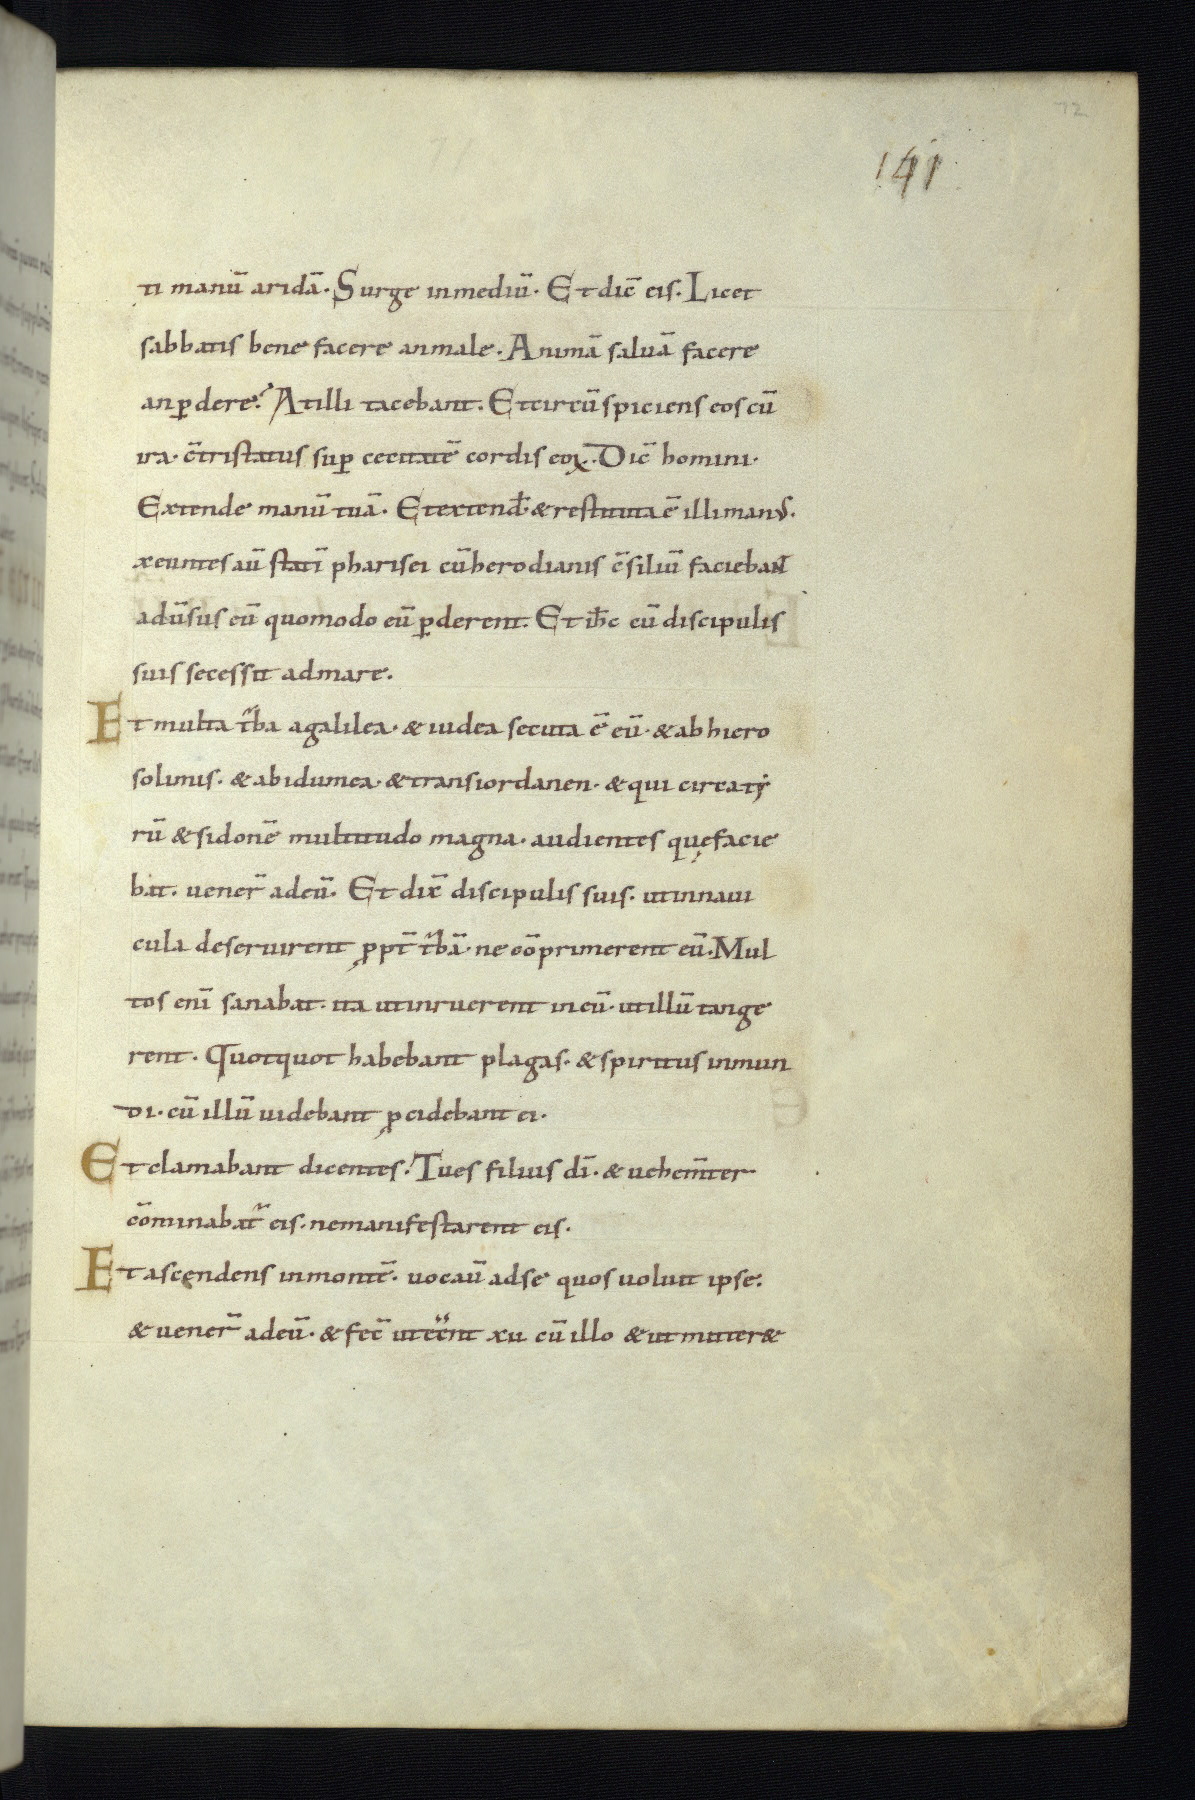 72
141
ti manū aridā. Surge inmediū. Et dic̄ eis. Licet
sabbatis bene facere anmale. Animā saluā facere
anꝑdere? Atilli tacebant. Etcircūspiciens eos cū
ira. c̄tristatus suꝑ cecitatē cordis eoꝝ. Dic̄ homini.
Extende manū tuā. Etextend̄. & restituta ē illi manus.
xeuntes aū statī pharisei cūherodianis c̄siliū faciebant
adūsus eū quomodo eū ꝑderent. Et ih̄c cū discipulis
suis secessit admare.
Et multa t̄ba agalilea. & iudea secuta ē eū. & ab hiero
solimis. & abidumea. & transiordanen. & qui circaty
rū & sidonē multitudo magna. audientes quę facie
bat. uener̄ adeū. Et dix̄ discipulis suis. utinnaui
cula deseruirent ꝓpt̄ t̄bā. ne cōprimerent eū. Mul
tos enī sanabat. ita utinruerent in eū. utillū tange
rent. Quotquot habebant plagas. & spiritus inmun
di. cū illū uidebant ꝓcidebant ei.
Et clamabant dicentes. Tues filius dī. & uehem̄ter
c̄ominabat̄ eis. nemanifestarent eis.
Et ascendens inmontē. uocaū adse quos uoluit ipse.
& uener̄ adeū. & fec̄ utēēnt xii cū illo & ut mitter&